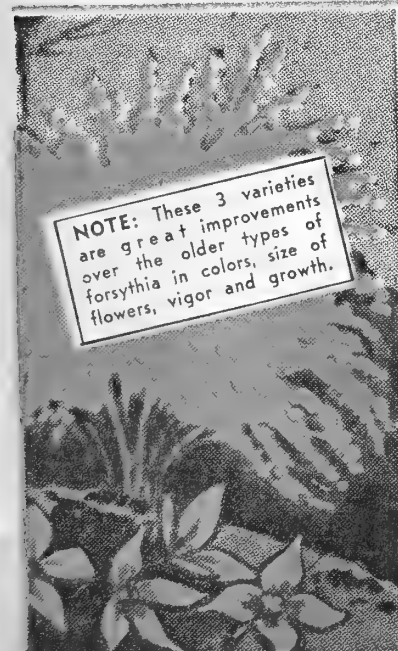 NOTE: These 3 varieties
are great improvements
over the older types of
forsythia in colors, size of
flowers, vigor and growth.